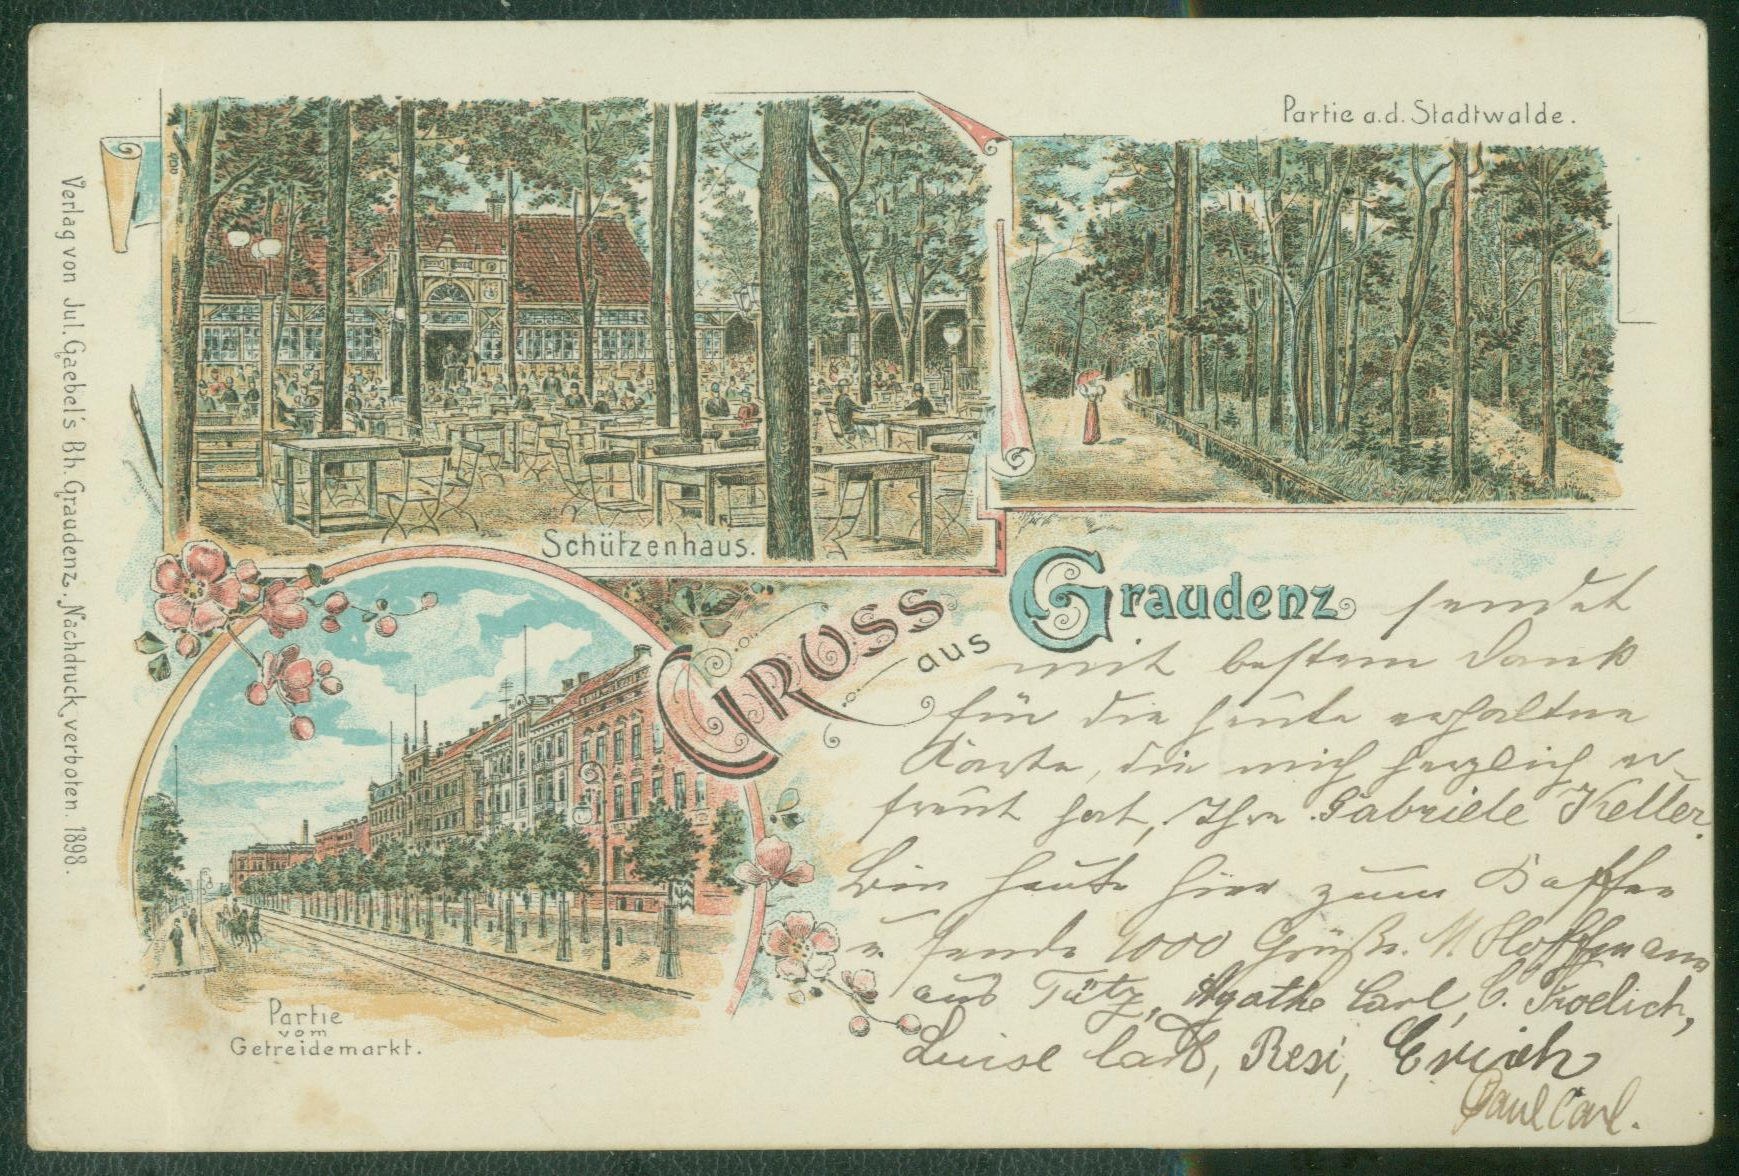 Partie a.d. Stadtwalde.
Schützenhaus.
Gruss aus Graudenz
sendet
mit bestem Dank
für die heute erhaltene
Karte, die mich herzlich er-
freut hat, Ihre Gabriele Keller.
Bin heute hier zum Kaffee
u. sende 1000 Grüße. M. Hoffmann
aus Tütz, Agathe Carl, C. Froelich,
Luise Carl, Resi, Erich
Paul Carl.
Partie
vom
Getreidemarkt.
Verlag von Jul. Gaebel's Bh. Graudenz. Nachdruck verboten. 1898.